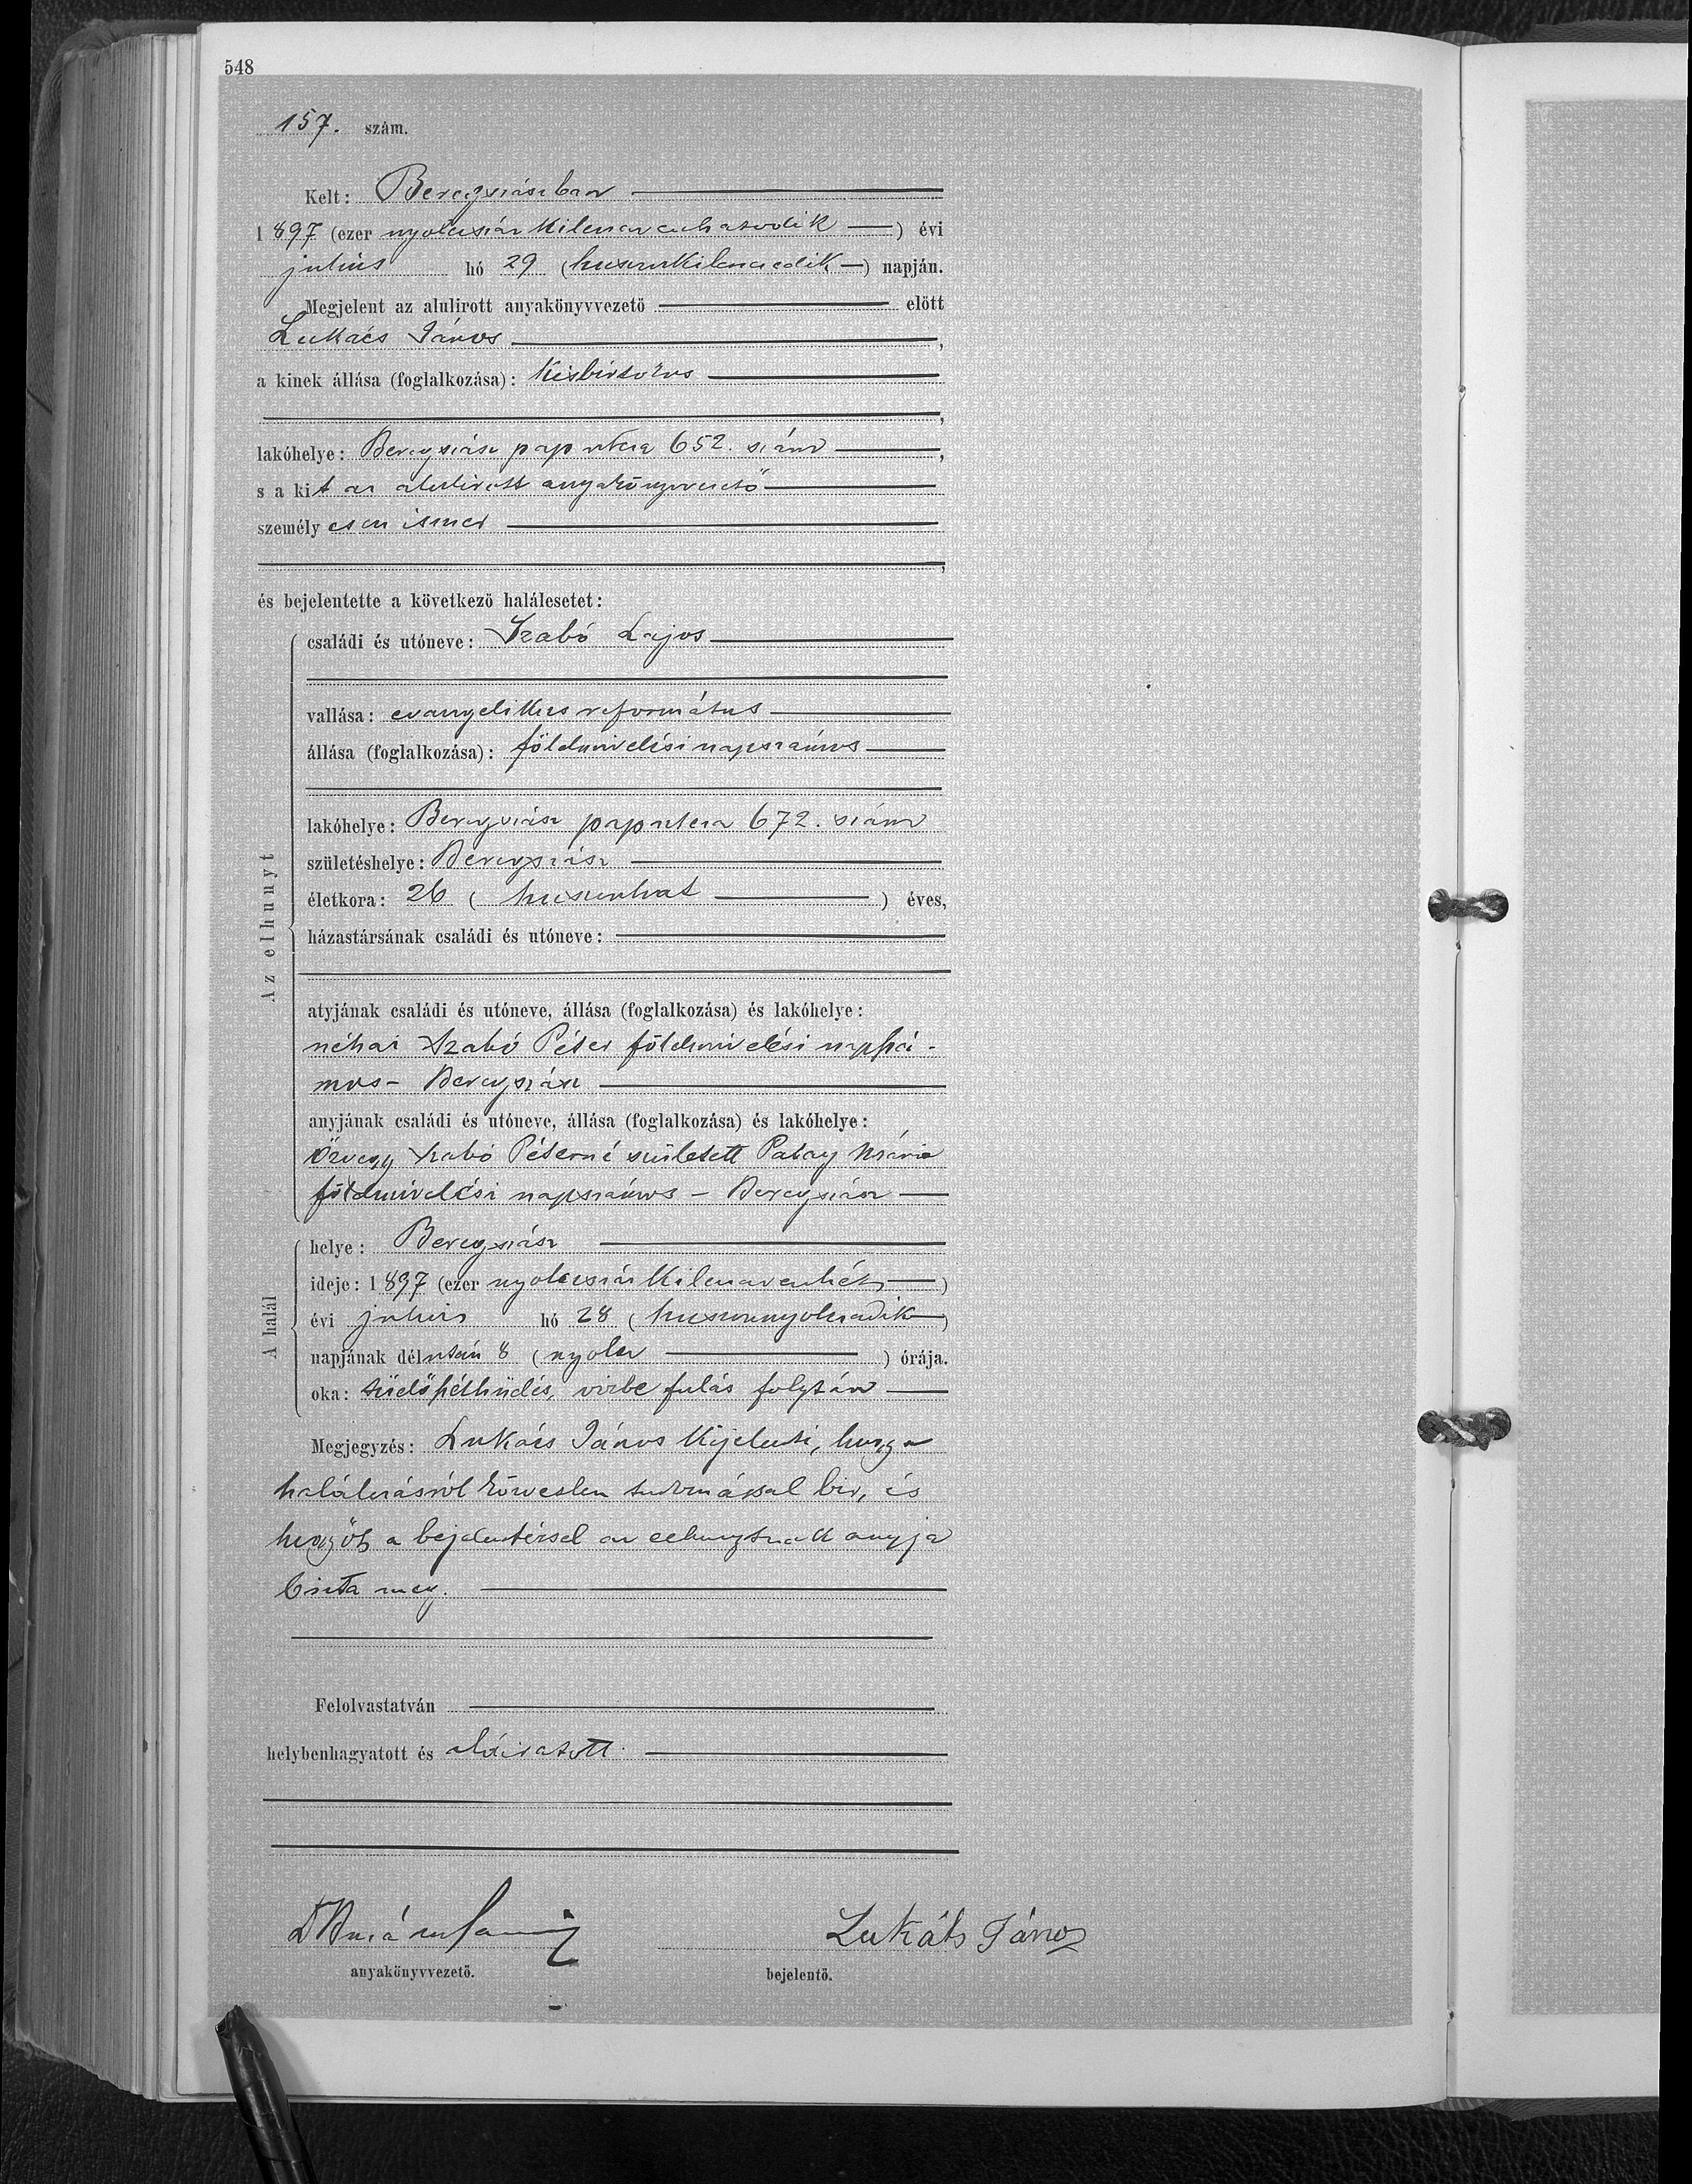 548
157. szám.
Kelt: Beregszászban
1897 (ezer nyolcszáz kilencvenhatodik) évi
julius hó 29 (huszonkilencedik) napján.
Megjelent az alulirott anyakönyvvezető előtt
Lukács János,
a kinek állása (foglalkozása): kisbirtokos
,
lakóhelye: Beregszász pap utcza 652. szám,
s a kit az alulirott anyakönyvvezető
személyesen ismer
,
és bejelentette a következő halálesetet:
Az elhunyt
családi és utóneve: Szabó Lajos
vallása: evangelikus református
állása (foglalkozása): földmivelési napszámos
lakóhelye: Beregszász pap utcza 672. szám
születéshelye: Beregszász
életkora: 26 (huszonhat) éves,
házastársának családi és utóneve:
atyjának családi és utóneve, állása (foglalkozása) és lakóhelye:
néhai Szabó Péter földmivelési napszá-
mos - Beregszász
anyjának családi és utóneve, állása (foglalkozása) és lakóhelye:
Özvegy Szabó Péterné született Patay Mária
földmivelési napszámos - Beregszász
A halál
helye: Beregszász
ideje: 1897 (ezer nyolcszáz kilencvenhét)
évi julius hó 28 (huszonnyolcadik)
napjának délután 8 (nyolc) órája.
oka: tüdőhűdés, vizbe fulás folytán
Megjegyzés: Lukács János kijelenti, hogy a
halálozásról közvetlen tudomással bir, és
hogy őt a bejelentéssel az elhunytnak anyja
bizta meg.
Felolvastatván
helybenhagyatott és aláiratott.
Lukáts János
anyakönyvvezető. bejelentő.